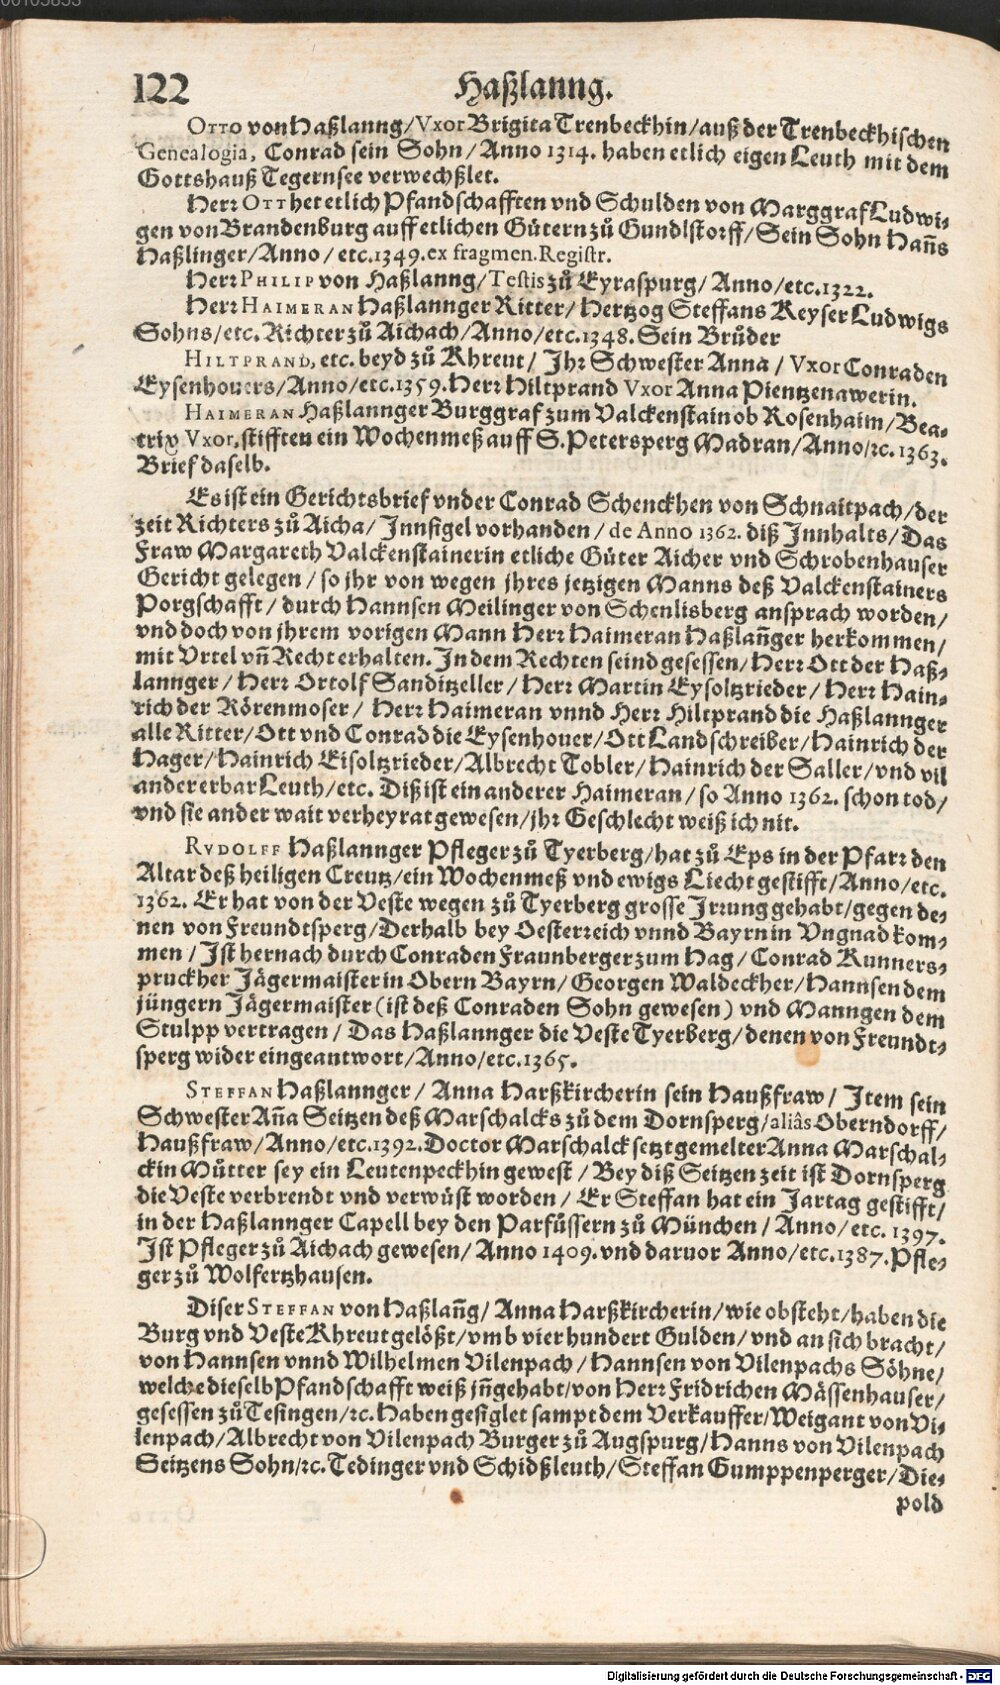 122 Haßlanng.
OTTO von Haßlanng/Vxor Brigita Trenbeckhin/auß der Trenbeckhischen
Genealogia, Conrad sein Sohn/Anno 1314. haben etlich eigen Leuth mit dem
Gottshauß Tegernsee verwechßlet.
Herr OTT het etlich Pfandschafften vnd Schulden von Marggraf Ludwi-
gen von Brandenburg auff etlichen Gütern zů Gundlstorff/Sein Sohn Hañs
Haßlinger/Anno/etc.1349.ex fragmen.Registr.
Herr PHILIP von Haßlanng/Testis zů Eyraspurg/Anno/etc.1322.
Herr HAIMERAN Haßlannger Ritter/Hertzog Steffans Keyser Ludwigs
Sohns/etc. Richter zů Aichach/Anno/etc.1348. Sein Brůder
HILTPRAND, etc. beyd zů Khreut/ Ihr Schwester Anna/Vxor Conraden
Eysenhouers/Anno/etc.1359. Herr Hiltprand Vxor Anna Pientzenawerin.
HAIMERAN Haßlannger Burggraf zum Valckenstain ob Rosenhaim/Bea-
trix Vxor, stifften ein Wochenmeß auff S. Petersperg Madran/Anno/ꝛc. 1363.
Brief daselb.
Es ist ein Gerichtsbrief vnder Conrad Schenckhen von Schnaitpach/der
zeit Richters zů Aicha/Innsigel vorhanden/de Anno 1362. diß Innhalts/Das
Fraw Margareth Valckenstainerin etliche Güter Aicher vnd Schrobenhauser
Gericht gelegen/so jhr von wegen jhres jetzigen Manns deß Valckenstainers
Porgschafft/durch Hannsen Meilinger von Schenlisberg ansprach worden/
vnd doch von jhrem vorigen Mann Herr Haimeran Haßlañger herkommen/
mit Vrtel vñ Recht erhalten. In dem Rechten seind gesessen/Herr Ott der Haß-
lannger/Herr Ortolf Sanditzeller/Herr Martin Eysoltzrieder/Herr Hain-
rich der Rörenmoser/Herr Haimeran vnnd Herr Hiltprand die Haßlannger
alle Ritter/Ott vnd Conrad die Eysenhouer/Ott Landschreiber/Hainrich der
Hager/Hainrich Eisoltzrieder/Albrecht Tobler/Hainrich der Saller/vnd vil
ander erbar Leuth/etc. Diß ist ein anderer Haimeran/so Anno 1362. schon tod/
vnd sie ander wait verheyrat gewesen/jhr Geschlecht weiß ich nit.
RVDOLFF Haßlannger Pfleger zů Tyerberg/hat zů Eps in der Pfarr den
Altar deß heiligen Creutz/ein Wochenmeß vnd ewigs Liecht gestifft/Anno/etc.
1362. Er hat von der Veste wegen zů Tyerberg grosse Irrung gehabt/gegen de-
nen von Freundtsperg/Derhalb bey Oesterreich vnnd Bayrn in Vngnad kom-
men/Ist hernach durch Conraden Fraunberger zum Hag/Conrad Kunners-
pruckher Jägermaister in Obern Bayrn/Georgen Waldeckher/Hannsen dem
jüngern Jägermaister (ist deß Conraden Sohn gewesen) vnd Manngen dem
Stulpp vertragen/Das Haßlannger die Veste Tyerberg/denen von Freundt-
sperg wider eingeantwort/Anno/etc.1365.
STEFFAN Haßlannger/Anna Harßkircherin sein Haußfraw/Item sein
Schwester Aña Seitzen deß Marschalcks zů dem Dornsperg/aliâs Oberndorff/
Haußfraw/Anno/etc.1392. Doctor Marschalck setzt gemelter Anna Marschal-
ckin Můtter sey ein Leutenpeckhin gewest/Bey diß Seitzen zeit ist Dornsperg
die Veste verbrendt vnd verwüst worden/Er Steffan hat ein Jartag gestifft/
in der Haßlannger Capell bey den Parfüssern zů München/Anno/etc. 1397.
Ist Pfleger zů Aichach gewesen/Anno 1409. vnd daruor Anno/etc.1387. Pfle-
ger zů Wolfertzhausen.
Diser STEFFAN von Haßlañg/Anna Harßkircherin/wie obsteht/haben die
Burg vnd Veste Khreut gelößt/vmb vier hundert Gulden/vnd an sich bracht/
von Hannsen vnnd Wilhelmen Vilenpach/Hannsen von Vilenpachs Söhne/
welche dieselb Pfandschafft weiß jñgehabt/von Herr Fridrichen Mässenhauser/
gesessen zů Tesingen/ꝛc. Haben gesiglet sampt dem Verkauffer/Weigant von Vi-
lenpach/Albrecht von Vilenpach Burger zů Augspurg/Hanns von Vilenpach
Seitzens Sohn/ꝛc. Tedinger vnd Schidßleuth/Steffan Gumppenperger/Die-
pold
Digitalisierung gefördert durch die Deutsche Forschungsgemeinschaft - DFG